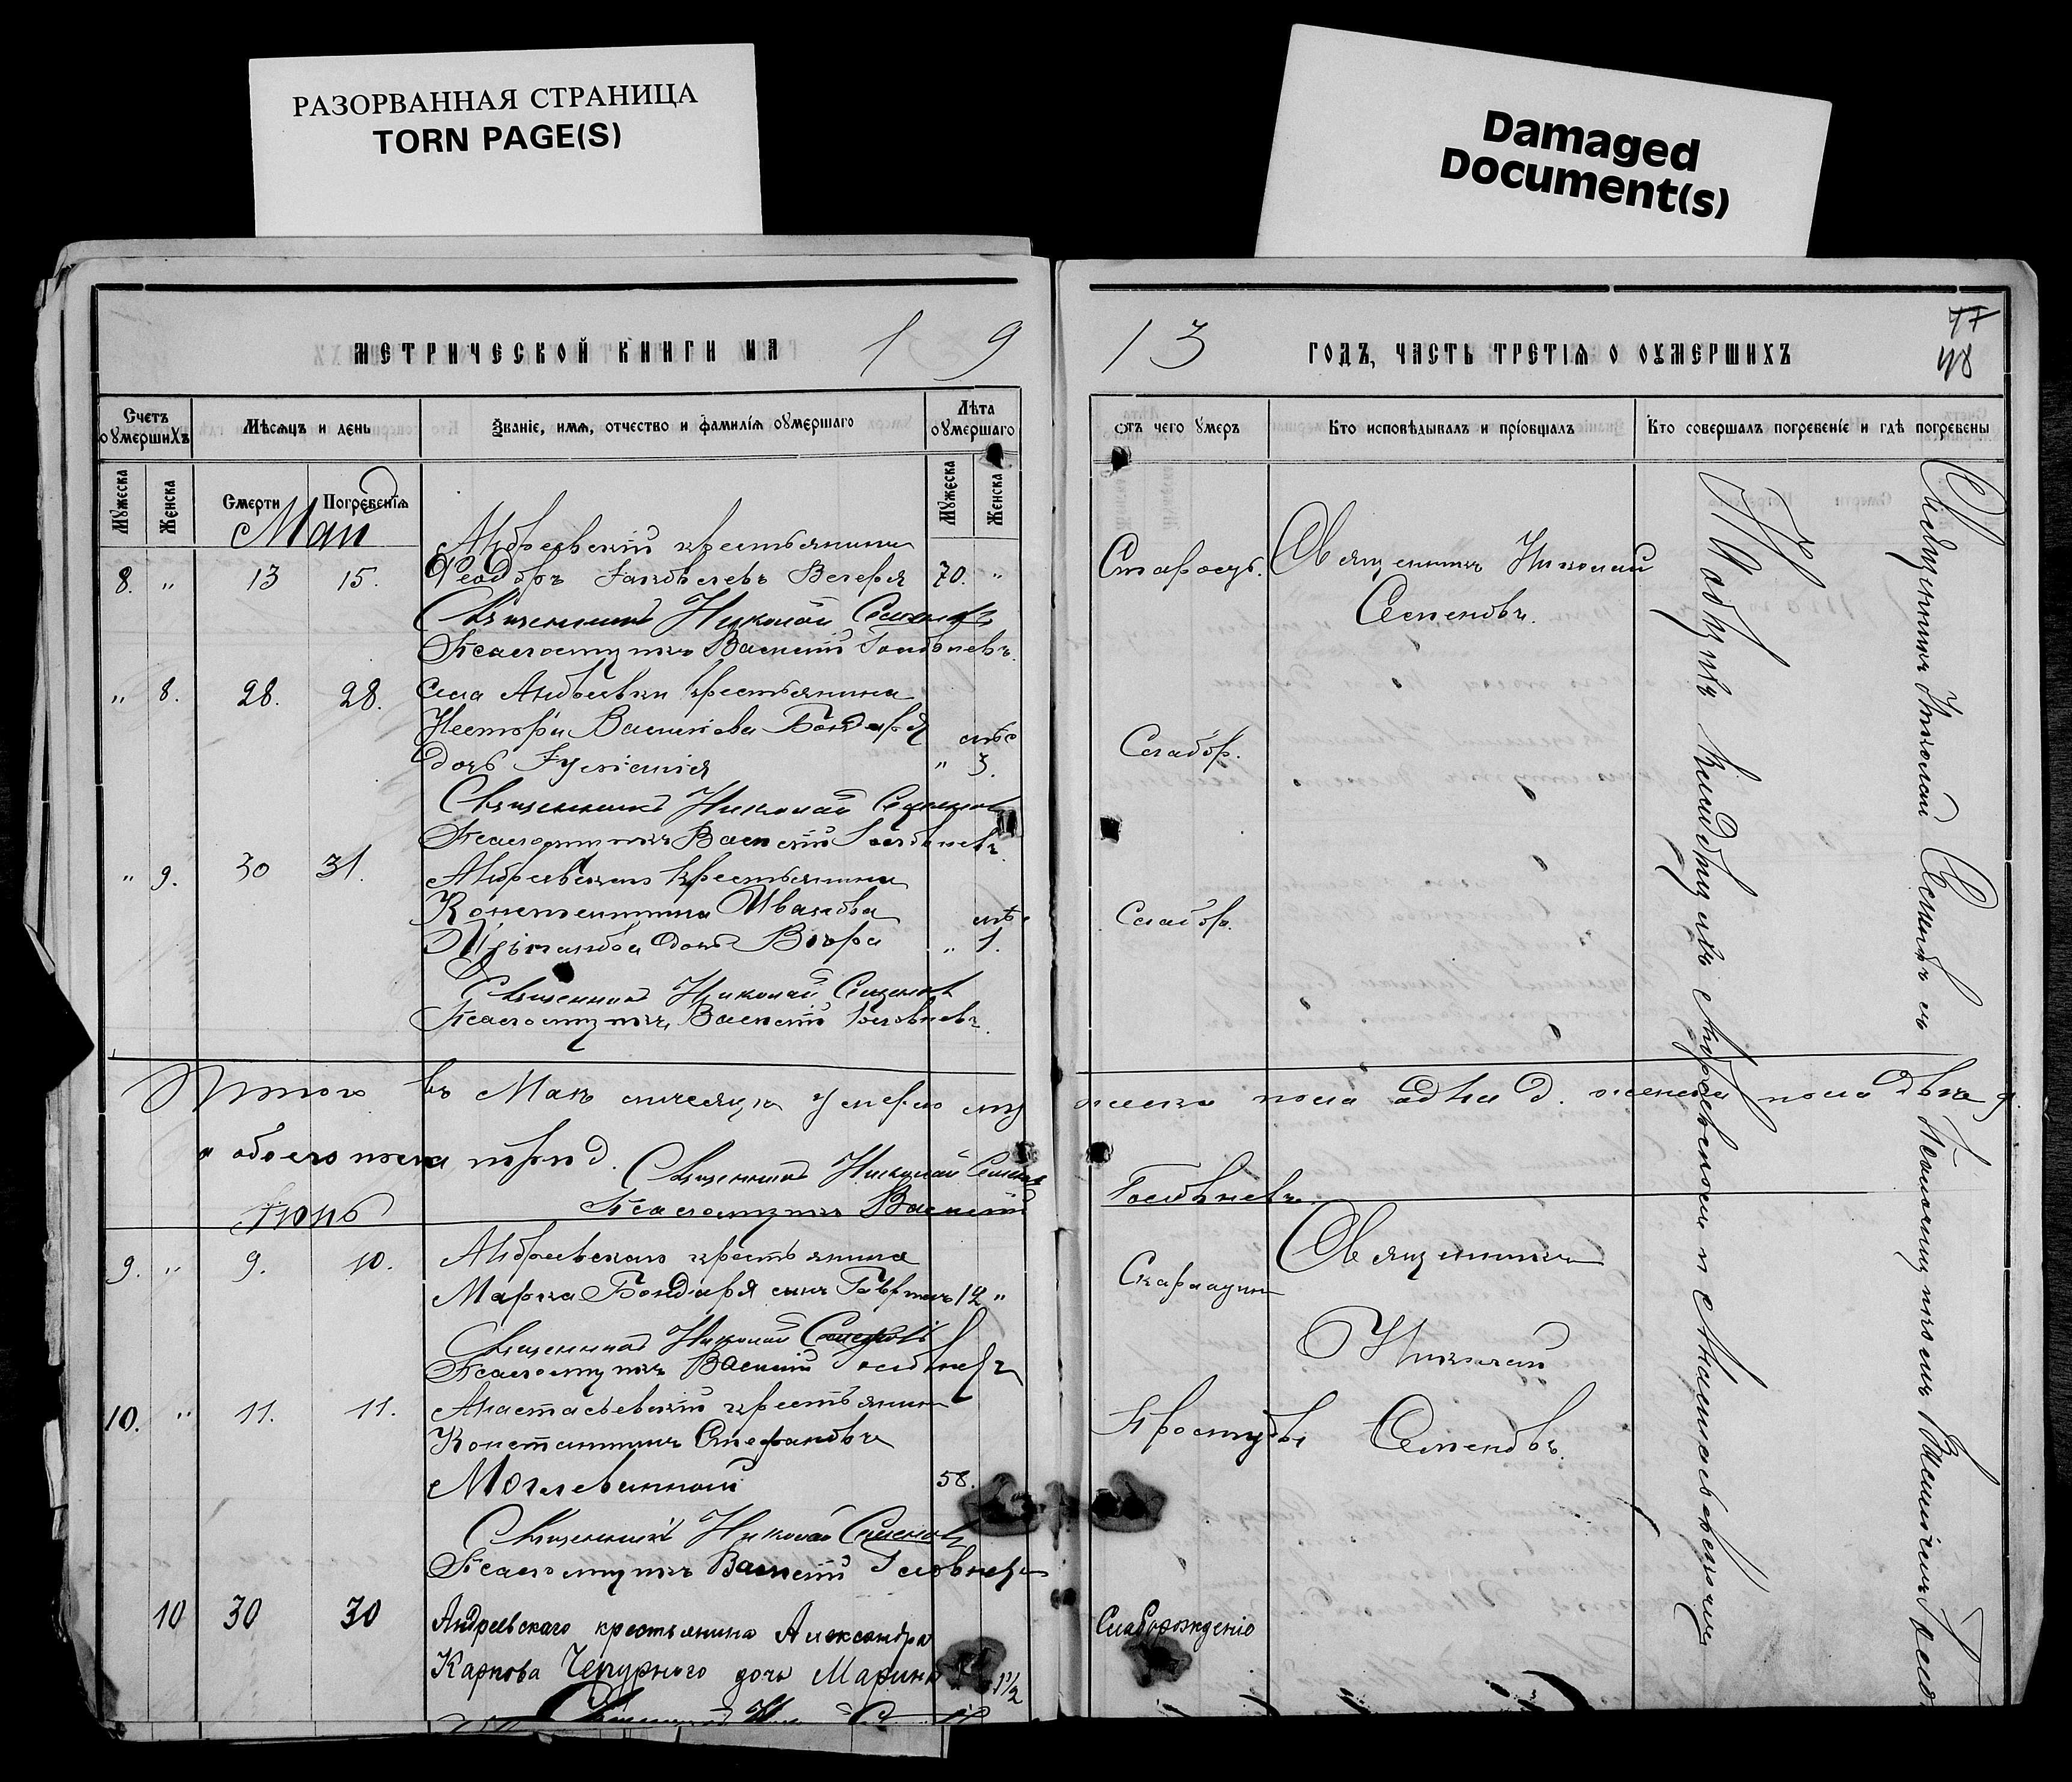 РАЗОРВАННАЯ СТРАНИЦА
TORN PAGE(S)
Damaged
Document(s)
МЕТРИЧЕСКОЙ КНИГИ НА 19
13 ГОДЪ, ЧАСТЬ ТРЕТІЯ О ОУМЕРШИХЪ
48
Счетъ оумершихъ
Мѣсяцъ и день
Званіе, имя, отчество и фамилія оумершаго
Лѣта оумершаго
Отъ чего умеръ
Кто исповѣдывалъ и пріобщалъ
Кто совершалъ погребеніе и гдѣ погребены
Мужеска
Женска
Смерти
Погребенія
Мужеска
Женска
Май
Андреевскій крестьянинъ
8. " 13 15. Ѳеодоръ Іаковлевъ 70. " Старость. Священникъ Николай
Священникъ Николай Семеновъ Семеновъ.
Псаломщикъ Василій Головневъ.
" 8. 28. 28. Села Андреевки крестьянина
Нестора Васильева Бондаря мѣс
дочь Іуліанія " 3. Слабор.
Священникъ Николай Семеновъ
Псаломщикъ Василій Головневъ.
" 9. 30 31. Андреевскаго крестьянина
Константина Иванова мѣс. Слабор.
дочь Вѣра " 1.
Священникъ Николай Семеновъ
Псаломщикъ Василій Головневъ.
Итого въ Маѣ мѣсяцѣ умерло мужеска пола одна д. женска пола двѣ д.
а обоего пола три д. Священникъ Николай Семеновъ
Псаломщикъ Василій Головневъ
Іюнь
9. " 9. 10. Андреевскаго крестьянина Священникъ
Марка Бондаря сынъ Гавріилъ 12 " Скарлатин
Священникъ Николай Семеновъ Николай
Псаломщикъ Василій Головневъ
10. " 11. 11. Анастасьевскій крестьянинъ Простуды
Константинъ Стефановъ Семеновъ.
58.
Священникъ Николай Семеновъ
Псаломщикъ Василій Головневъ
10 30 30 Андреевскаго крестьянина Александра Слаборожденіе
Карпова Чепурного дочь Марина 1½
Священникъ
На кладбищѣ Андреевскомъ и Анастасьевскомъ
Священникъ Николай Семеновъ съ Псаломщикомъ Василіемъ